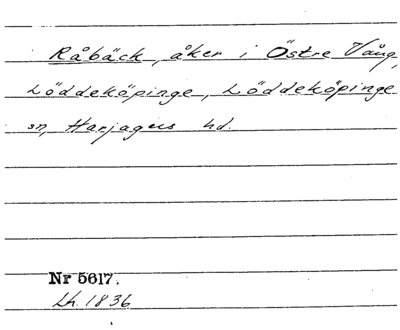 Råbäck, åker i Östre Vång,
Löddeköpinge, Löddeköpinge
sn, Harjagers hd.
Nr 5617.
Lh. 1836